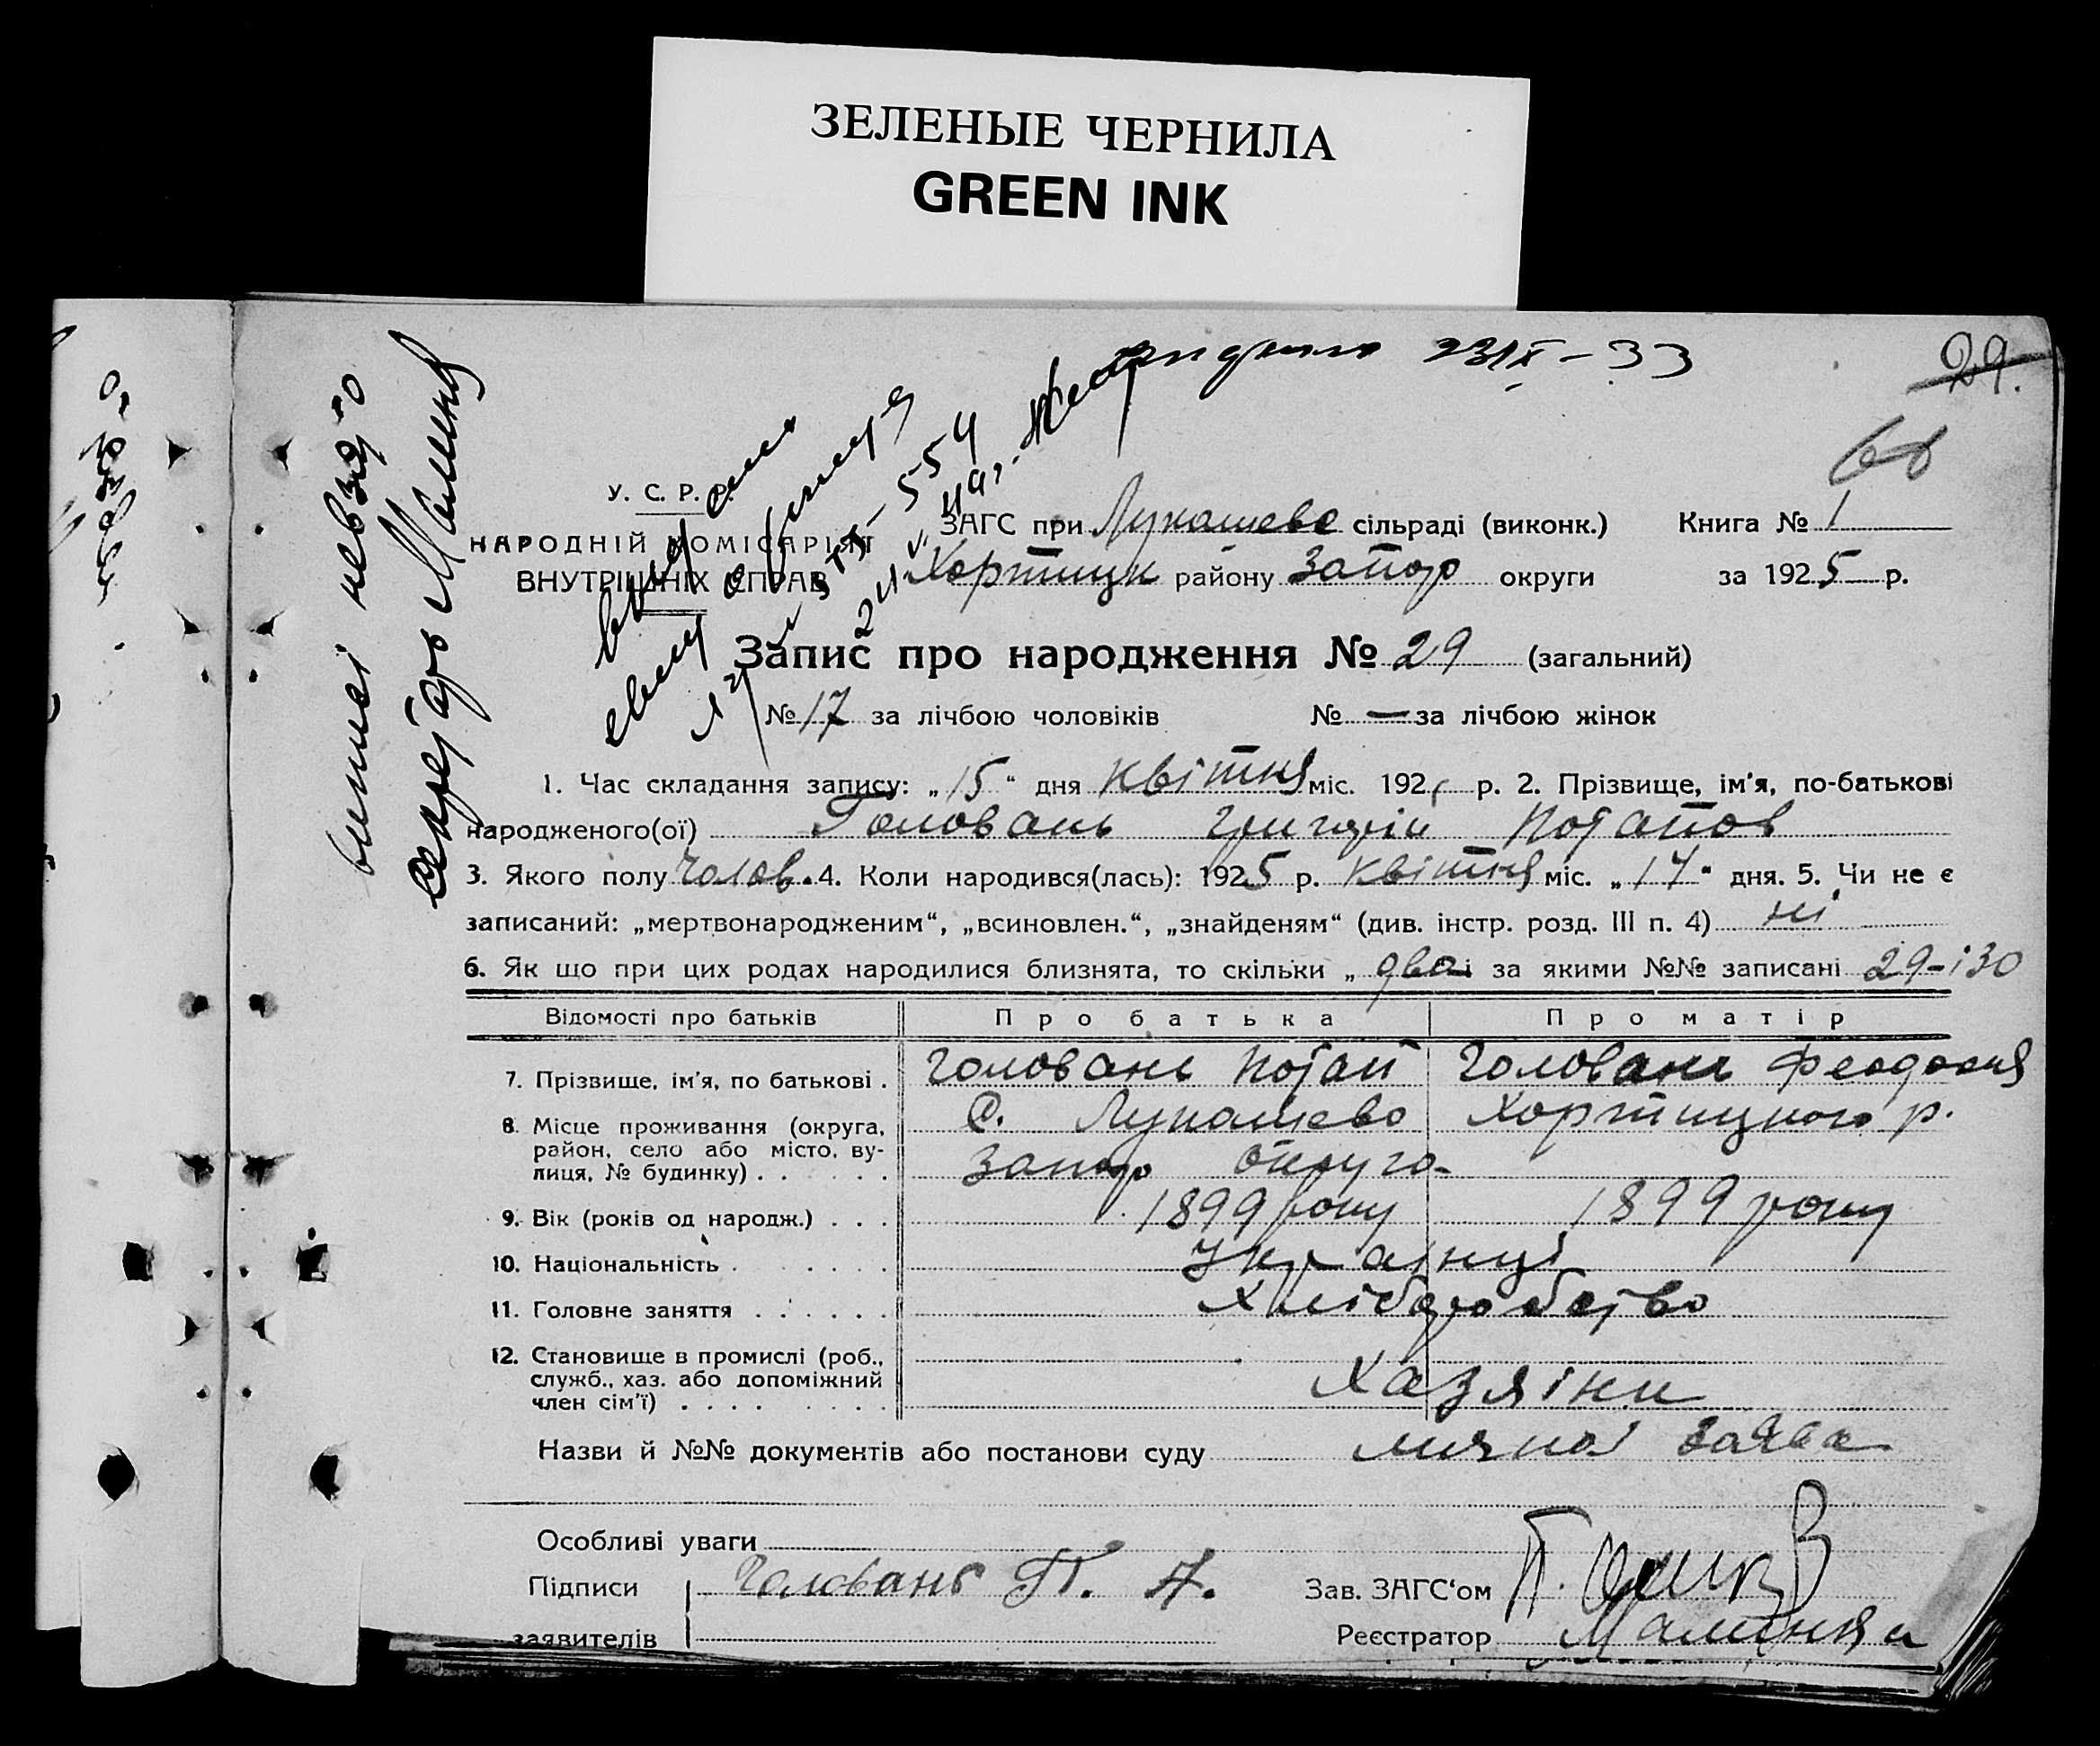 ЗЕЛЕНЫЕ ЧЕРНИЛА
GREEN INK
23/IX-33
29.
У. С. Р. Р.
НАРОДНІЙ КОМІСАРІЯТ
ВНУТРІШНІХ СПРАВ
ЗАГС при Лукашево сільраді (виконк.) Книга № 1
Хортицьк району Запор округи за 1925 р.
Запис про народження № 29 (загальний)
№ 17 за лічбою чоловіків № — за лічбою жінок
1. Час складання запису: „15“ дня квітня міс. 192 р. 2. Прізвище, ім’я, по-батькові
народженого(ої) Головань Григорій Потапов
3. Якого полу чолов. 4. Коли народився(лась): 1925 р. квітня міс. „14“ дня. 5. Чи не є
записаний: „мертвонародженим“, „всиновлен.“, „знайденям“ (див. інстр. розд. III п. 4) ні
6. Як що при цих родах народилися близнята, то скільки „ два і за якими №№ записані 29-і30
Відомості про батьків Про батька Про матір
7. Прізвище, ім’я, по батькові . Головань Потап Головань Феодосия
8. Місце проживання (округа, с. Лукашево Хортицького р.
район, село або місто, ву-
лиця, № будинку) . . . . . . Запор округа
9. Вік (років од народж.) . . . 1899 року 1899 року
10. Національність . . . . . . Українці
11. Головне заняття . . . . . . Хліборобство
12. Становище в промислі (роб.,
служб., хаз. або допоміжний Хазяіни
член сім’ї) . . . . . . . .
Назви й №№ документів або постанови суду заява
Особливі уваги
Підписи Головань П. А. Зав. ЗАГС‘ом
заявителів Реєстратор
виписі невзято
секретарь Малиня